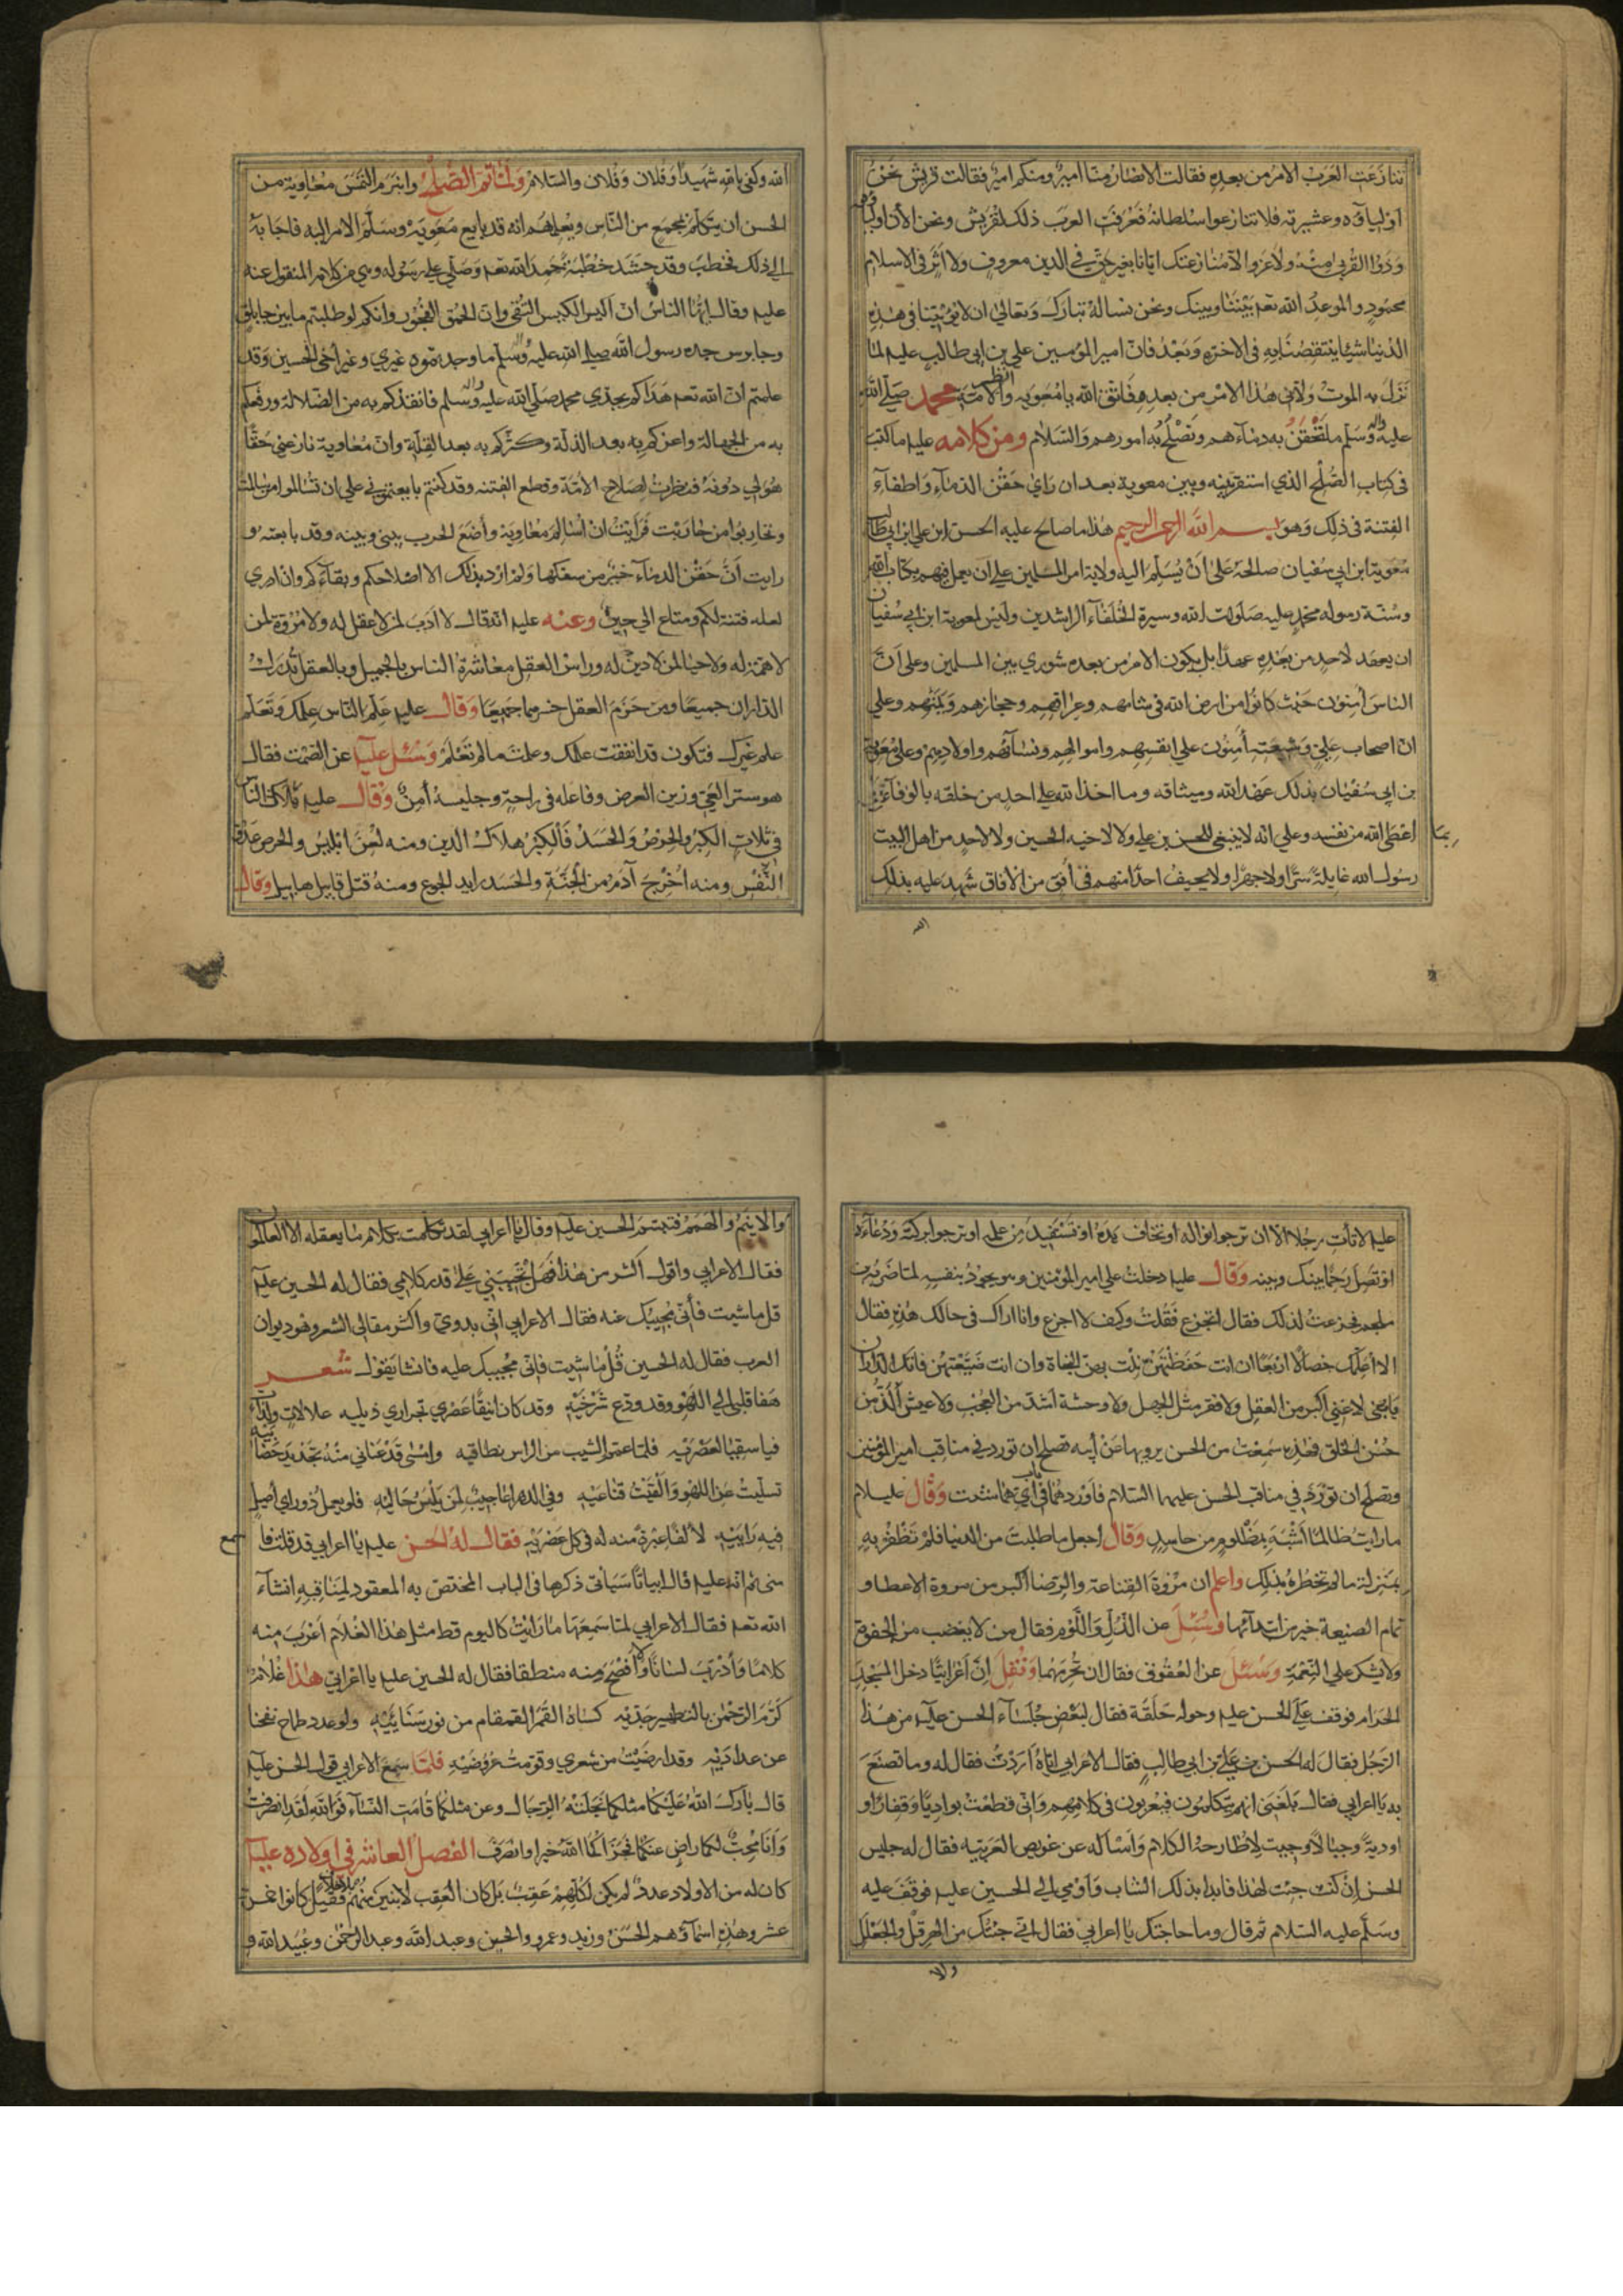 تنازعت العرب الامر من بعده فقالت الانصار منا امير ومنكم امير فقالت قريش نحن
اولياؤه وعشيرته فلا تنازعوا سلطانه فعرفت العرب ذلك لقريش ونحن الآن اولياؤه
وذووا القربى منه ولا غرو الا منازعتك ايانا بغير حق في الدين معروف ولا اثر في الاسلام
محمود والموعد الله تعم بيننا وبينك ونحن نساله تبارك وتعالى ان لا يؤتينا في هذه
الدنيا شيئا ينتقصنا به في الاخرة وبعد فان امير المؤمنين علي بن ابي طالب عليه لما
نزل به الموت ولاني هذا الامر من بعده فاتق الله يا معوية وانظر لامة محمد صلى الله
عليه واله وسلم ما تحقن به دماءهم وتصلح به امورهم والسلام ومن كلامه عليه ما كتب
في كتاب الصلح الذي استقر بينه وبين معوية بعد ان راى حقن الدماء واطفاء
الفتنة في ذلك وهو بسم الله الرحمن الرحيم هذا ما صالح عليه الحسن ابن علي ابن ابي طالب
معوية ابن ابي سفيان صالحه على ان يسلم اليه ولاية امر المسلمين على ان يعمل فيهم بكتاب الله
وسنة رسوله محمد عليه صلوات الله وسيرة الخلفاء الراشدين وليس لمعوية ابن ابي سفيان
ان يعهد لاحد من بعده عهدا بل يكون الامر من بعده شورى بين المسلمين وعلى ان
الناس آمنون حيث كانوا من ارض الله في شامهم وعراقهم وحجازهم ويمنهم وعلى
ان اصحاب علي وشيعته آمنون على انفسهم واموالهم ونسائهم واولادهم وعلى معوية
بن ابي سفيان بذلك عهد الله وميثاقه وما اخذ الله على احد من خلقه بالوفاء
بما اعطى الله من نفسه وعلى انه لا ينبغي للحسن بن علي ولا لاخيه الحسين ولا لاحد من اهل البيت
رسول الله غايلة سرا ولا جهرا ولا يخيف احدا منهم في أفق من الآفاق شهد عليه بذلك
الله
الله وكفى بالله شهيدا وفلان وفلان والسلام ولما تم الصلح وانبرم التمس معاوية من
الحسن ان يتكلم بمجمع من الناس ويعلمهم انه قد بايع معوية وسلم الامر اليه فاجابه
الى ذلك فخطب وقد حشد خطبة بحمد الله تعم وصلى على رسوله وهي من كلامه المنقول عنه
عليه وقال ايها الناس ان اكيس الكيس التقى وان الحمق الفجور وانكم لو طلبتم ما بين جابلق
وجابرس جده رسول الله صلى الله عليه واله وسلم ما وجدتموه غيري وغير اخي الحسين وقد
علمتم ان الله تعم هداكم بجدي محمد صلى الله عليه واله وسلم فانقذكم به من الضلالة ورفعكم
به من الجهالة واعزكم به بعد الذلة وكثركم به بعد القلة وان معاوية نازعني حقا
هو لي دونه فنظرت لصلاح الامة وقطع الفتنة وقد كنتم بايعتموني على ان تسالموا من سالمت
وتحاربوا من حاربت فرأيت ان اسالم معاوية وأضع الحرب بيني وبينه وقد بايعته و
رايت أن حقن الدماء خير من سفكها ولم ارد بذلك الا اصلاحكم وبقاءكم وان ادري
لعله فتنة لكم ومتاع الى حين وعنه عليه انه قال لا ادب لمن لا عقل له ولا مروة لمن
لا همة له ولا حيا لمن لا دين له وراس العقل معاشرة الناس بالجميل وبالعقل تدرك
الداران جميعا ومن حرم العقل حرمهما جميعا وقال عليه علم الناس علمك وتعلم
علم غيرك فتكون قد اتقنت علمك وعلمت ما لم تعلم وسئل عليه عن الصمت فقال
هو ستر العي وزين العرض وفاعله في راحة وجليسه أمن وقال عليه هلاك الناس
في ثلاث الكبر والحرص والحسد فالكبر هلاك الدين ومنه لعن ابليس والحرص عدو
النفس ومنه اخرج آدم من الجنة والحسد رايد ومنه قتل قابيل هابيل وقال
عليه لا تأت رجلا الا ان ترجوا نواله او تخاف يده او تستفيد من علمه او ترجوا بركته ودعاءه
او تصل رحما بينك وبينه وقال عليه دخلت على امير المؤمنين وهو يجود بنفسه لما ضربه ابن
ملجم فجزعت لذلك فقال اتجزع فقلت وكيف لا اجزع وانا اراك في حالك هذه فقال
الا اعلمك خصالا اربعا ان انت حفظتهن نلت بهن النجاة وان انت ضيعتهن فاتك الداران
يا بني لا غنى اكبر من العقل ولا فقر مثل الجهل ولا وحشة اشد من العجب ولا عيش ألذ من
حسن الخلق فهذه سمعت من الحسن يرويها عن أبيه تصلح ان تورد في مناقب امير المؤمنين
وتصلح ان تورد في مناقب الحسن عليهما السلام فاوردها في أي باب شئت وقال عليه السلام
ما رايت ظالما اشبه بمظلوم من حاسد وقال اجعل ما طلبت من الدنيا فلم تظفر به
بمنزلة ما لم تخطره ببالك واعلم ان مروة القناعة والرضا اكبر من مروة الاعطا و
تمام الصنيعة خير من ابتدائها وسئل عن الذل واللؤم فقال من لا يغضب من الجفوة
ولا يشكر على النعمة وسئل عن العقوق فقال ان تحرمهما ونقل ان اعرابيا دخل المسجد
الحرام فوقف على الحسن عليه وحوله حلقة فقال لبعض جلساء الحسن عليه من هذا
الرجل فقال له الحسن بن علي بن ابي طالب فقال الاعرابي اياه اردت فقال له وما تصنع
به يا اعرابي فقال بلغني انهم يتكلمون فيعربون في كلامهم واني قطعت بواديا وقفارا و
اودية وجبالا وجيت لاطارحه الكلام واسأله عن عويص العربية فقال له جليس
الحسن ان كنت جيت لهذا فابدا بذلك الشاب وأومى الى الحسين عليه فوقف عليه
وسلم عليه السلام ثم قال وما حاجتك يا اعرابي فقال اني جئتك من الهرقل والجعلل
والا
والاينم والهمهم فتبسم الحسين عليه وقال يا اعرابي لقد تكلمت بكلام ما يعقله الا العالمون
فقال الاعرابي واقول اكثر من هذا فهل تجيبني على قدر كلامي فقال له الحسين عليه
قل ما شيت فأني مجيبك عنه فقال الاعرابي اني بدوي واكثر مقالي الشعر وهو ديوان
العرب فقال له الحسين قل ما شيت فاني مجيبك عليه فانشا يقول شعر
هفا قلبي الى اللهو وقد ودع شرخيه وقد كان انيقا عصري تجراري ذيليه علالات ولذات
فيا سقيا لعصريه فلما عمم الشيب من الراس نطاقيه وامسى قد عناني منه تجديد خضابيه
تسليت عن اللهو وألقيت قناعيه وفي الدهر اعاجيب لمن يلبس حاليه فلو يعمل ذو راي أصيل
فيه رايه لألفى عبرة منه له في كل عصريه فقال له الحسن عليه يا اعرابي قد قلت فاسمع
مني ثم انه عليه قال ابياتا سياتي ذكرها في الباب المختص به المعقود لمناقبه انشاء
الله تعم فقال الاعرابي لما سمعها ما رايت كاليوم قط مثل هذا الغلام اعرب منه
كلاما وأذرب لسانا ولا أفصح منه منطقا فقال له الحسين عليه يا اعرابي هذا غلام
كرم الرحمن بالتطهير جديه كساه القمر القمقام من نور سنائيه ولو عدد طماح نفحنا
عن عداديه وقد ارضيت من شعري وقومت عروضيه فلما سمع الاعرابي قول الحسن عليه
قال بارك الله عليكما مثلكما نجلته الرجال وعن مثلكما قامت النساء فوالله لقد انصرفت
وأنا محب لكما راض عنكما فجزاكما الله خيرا وانصرف الفصل العاشر في اولاده عليه
كان له من الاولاد عدد لم يكن لكلهم عقب بل كان العقب لابنين منهم فقيل كانوا خمسة
عشر وهذه اسماؤهم الحسن وزيد وعمرو والحسين وعبد الله وعبد الرحمن وعبيد الله و